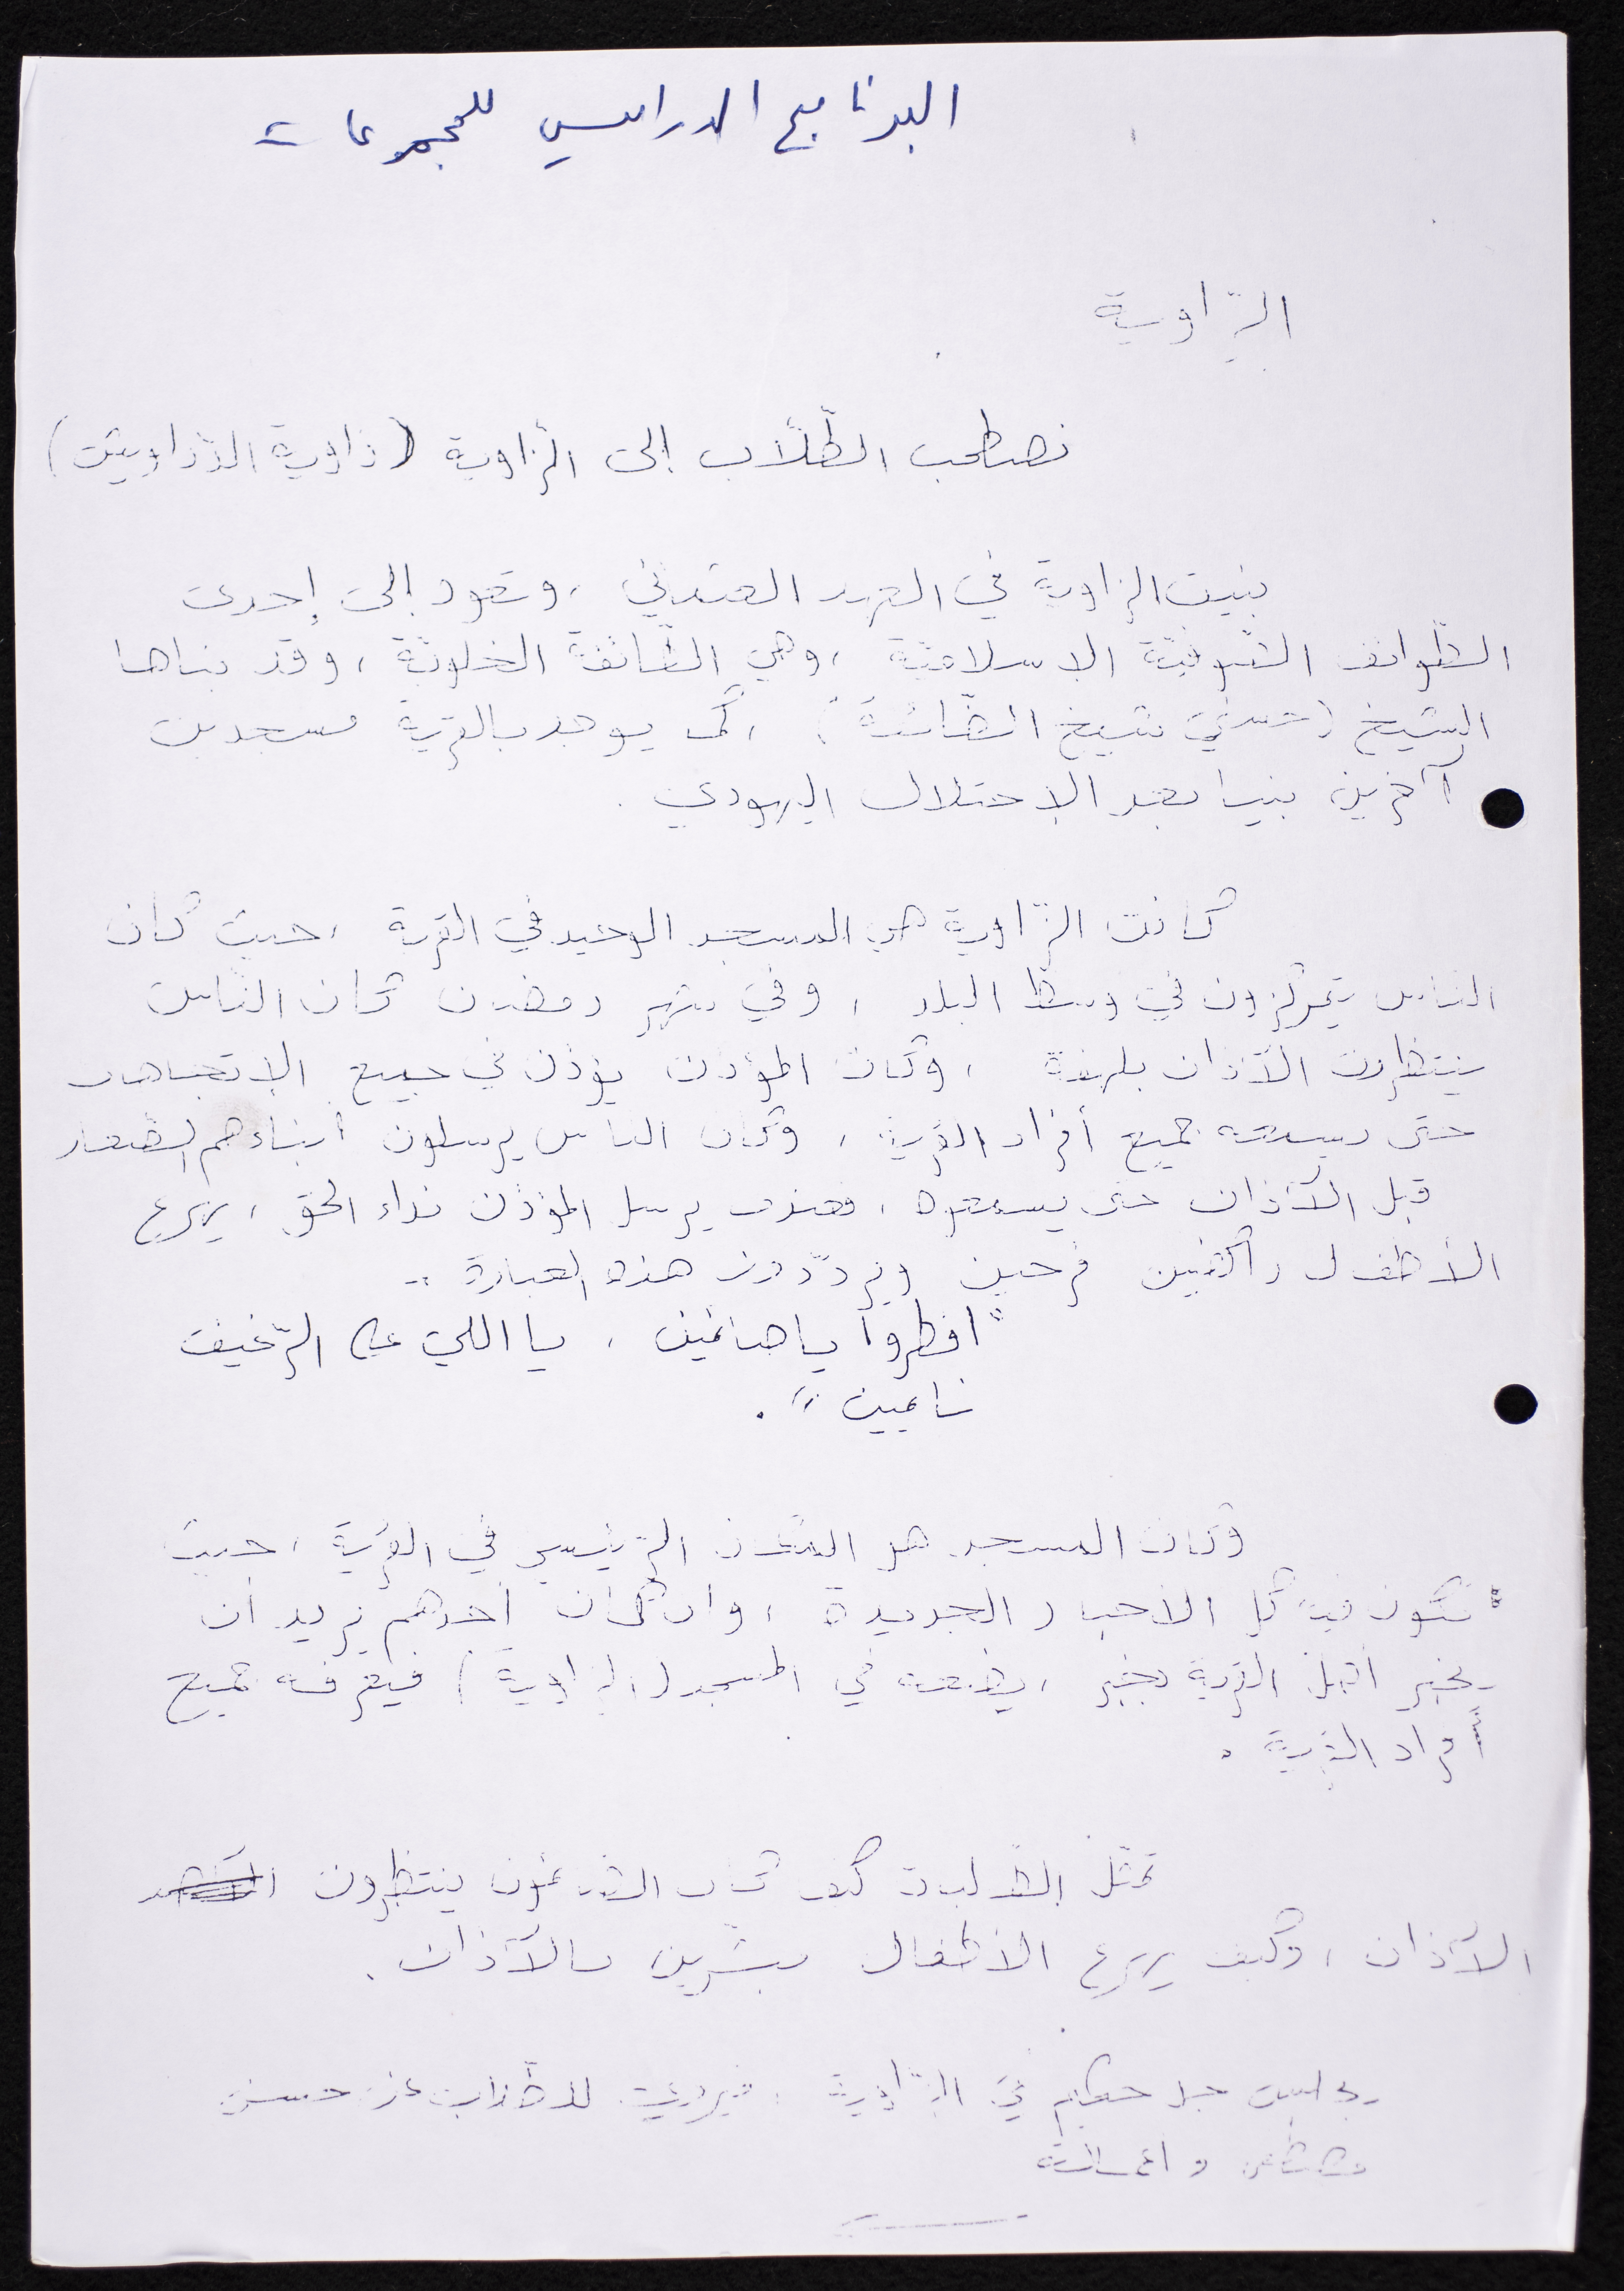 البرنامج الدراسي للمجموعات
الزّاوية
نصطحب الطّلّاب إلى الزّاوية (زاوية الدّراويش)
بنيت الزاوية في العهد العثماني ، وتعود إلى إحدى
الطّوائف الصّوفيّة الاسلاميّة ، وهي الطّائفة الخلوتيّة ، وقد بناها
الشيخ ( حسني شيخ الطّائفة ) ، كما يوجد بالقرية مسجدين
آخرين بنيا بعد الإحتلال اليهودي .
كانت الزّاوية هي المسجد الوحيد في القرية ، حيث كان
النّاس يتمركزون في وسط البلد ، وفي شهر رمضان كان النّاس
ينتظرون الآذان بلهفة ، وكان المؤذن يؤذن في جميع الإتجاهات
حتى يسمعه جميع أفراد القرية ، وكان الناس يرسلون أبناءهم الصّغار
قبل الآذان حتى يسمعوه ، فعندما يرسل المؤذن نداء الحق ، يهرع
الأطفال راكضين فرحين ويردّدون هذه العبارة ..
" افطروا يا صائمين ، يا اللي على الرّغيف
نايمين " .
وكان المسجد هو المكان الرّئيسي في القرية ، حيث
تكون فيه كل الأخبار الجديدة ، وان كان أحدهم يريد أن
يخبر أهل القرية بخبر ، يضعه في المسجد ( الزاوية ) فيعرفه جميع
أفراد القرية .
تمثّل الطّالبات كيف كان الصّائمون ينتظرون
الآذان ، وكيف يهرع الأطفال مبشّرين بالآذان .
يجلس في الزّاوية ، فيروي للطّلاب عن حسني